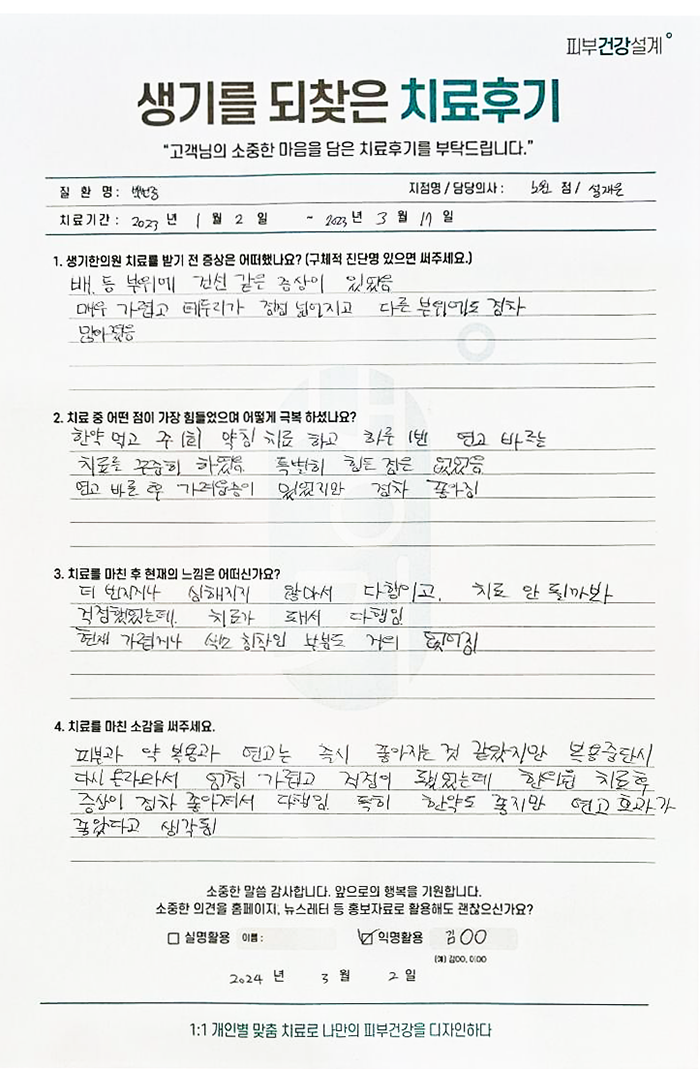 피부건강설계
생기를 되찾은 치료후기
"고객님의 소중한 마음을 담은 치료후기를 부탁드립니다."
질 환 명 : 백반증 지점명 / 담당의사 : 노원 점 / 설재은
치료기간 : 2023 년 1 월 2 일 ~ 2023 년 3 월 17 일
1. 생기한의원 치료를 받기 전 증상은 어떠했나요? (구체적 진단명 있으면 써주세요.)
배, 등 부위에 건선 같은 증상이 있었음
매우 가렵고 테두리가 점점 넓어지고 다른 부위에도 점차
많아졌음
2. 치료 중 어떤 점이 가장 힘들었으며 어떻게 극복 하셨나요?
한약 먹고 주 1회 약침 치료 하고 하루 1번 연고 바르는
치료를 꾸준히 하였음 특별히 힘든 점은 없었음
연고 바른 후 가려움증이 있었지만 점차 좋아짐
3. 치료를 마친 후 현재의 느낌은 어떠신가요?
더 번지거나 심해지지 않아서 다행이고, 치료 안 될까봐
걱정했었는데, 치료가 돼서 다행임
현재 가렵거나 색소 침착인 부분도 거의 없어짐
4. 치료를 마친 소감을 써주세요.
피부과 약 복용과 연고는 즉시 좋아지는 것 같았지만 복용중단시
다시 올라와서 엄청 가렵고 걱정이 됐었는데 한의원 치료 후
증상이 점차 좋아져서 다행임. 특히 한약도 좋지만 연고 효과가
좋았다고 생각됨
소중한 말씀 감사합니다. 앞으로의 행복을 기원합니다.
소중한 의견을 홈페이지, 뉴스레터 등 홍보자료로 활용해도 괜찮으신가요?
실명활용 이름 : 익명활용 김OO
(예) 김OO, 이OO
2024 년 3 월 2 일
1:1 개인별 맞춤 치료로 나만의 피부건강을 디자인하다